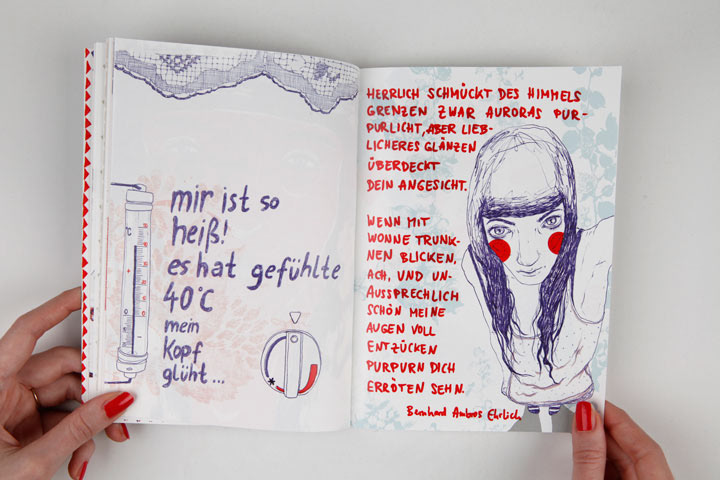 mir ist so
heiß!
es hat gefühlte
40°C
mein
Kopf
glüht...
HERRLICH SCHMÜCKT DES HIMMELS
GRENZEN ZWAR AURORAS PUR-
PURLICHT, ABER LIEB-
LICHERES GLÄNZEN
ÜBERDECKT
DEIN ANGESICHT.
WENN MIT
WONNE TRUNK-
NEN BLICKEN,
ACH, UND UN-
AUSSPRECHLICH
SCHÖN MEINE
AUGEN VOLL
ENTZÜCKEN
PURPURN DICH
ERRÖTEN SEHN.
Bernhard Ambros Ehrlich